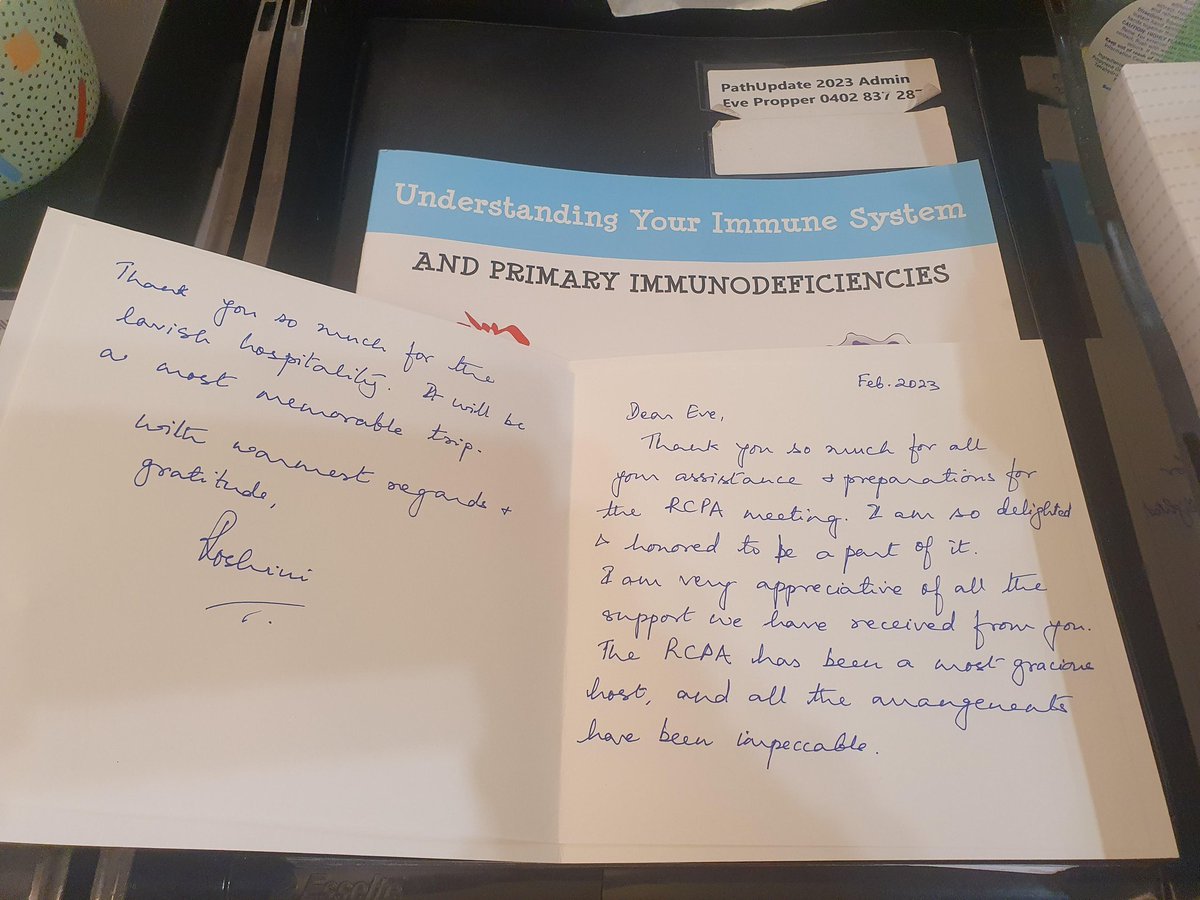 PathUpdate 2023 Admin
Eve Propper 0402 837 28
Understanding Your Immune System
AND PRIMARY IMMUNODEFICIENCIES
Feb. 2023
Dear Eve,
Thank you so much for all
your assistance & preparations for
the RCPA meeting. I am so delighted
& honored to be a part of it.
I am very appreciative of all the
support we have received from you.
The RCPA has been a most gracious
host, and all the arrangements
have been impeccable.
Thank you so much for the
lavish hospitality. It will be
a most memorable trip.
with warmest regards &
gratitude,
Roshini